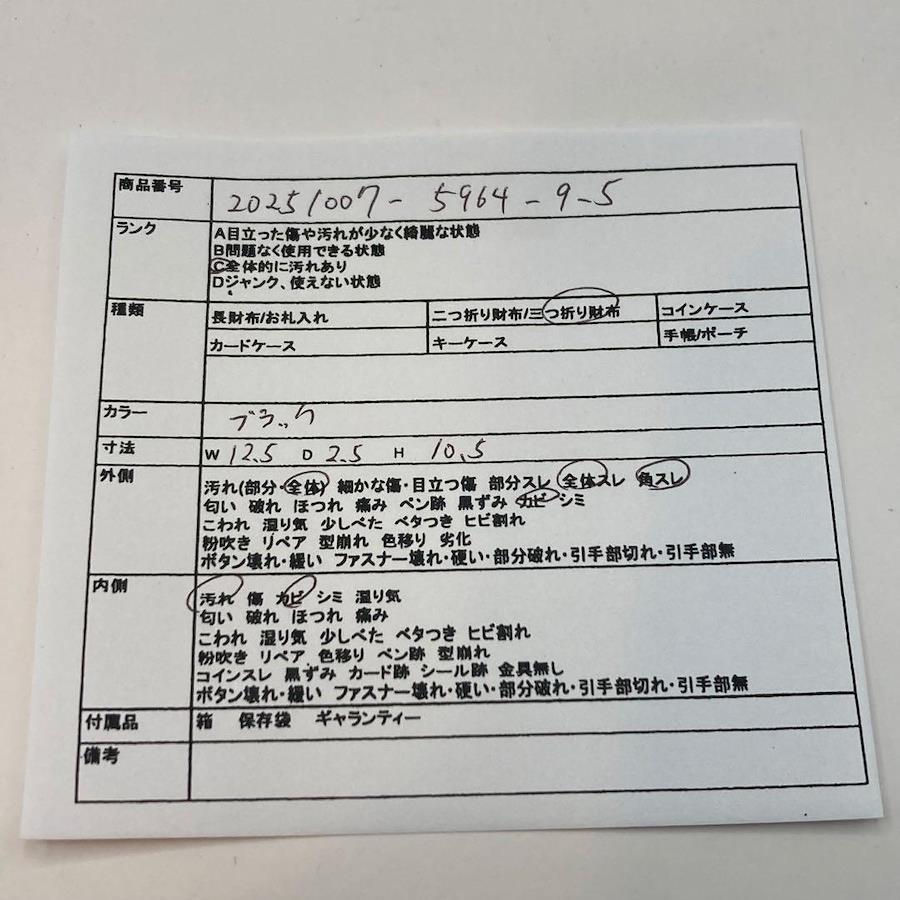 商品番号 20251007-5964-9-5
ランク A目立った傷や汚れが少なく綺麗な状態
B問題なく使用できる状態
C全体的に汚れあり
Dジャンク、使えない状態
種類 長財布/お札入れ 二つ折り財布/三つ折り財布 コインケース
カードケース キーケース 手帳/ポーチ
カラー ブラック
寸法 W 12.5 D 2.5 H 10.5
外側 汚れ(部分・全体) 細かな傷・目立つ傷 部分スレ 全体スレ 角スレ
匂い 破れ ほつれ 痛み ペン跡 黒ずみ カビ シミ
こわれ 湿り気 少しべた ベタつき ヒビ割れ
粉吹き リペア 型崩れ 色移り 劣化
ボタン壊れ・緩い ファスナー壊れ・硬い・部分破れ・引手部切れ・引手部無
内側 汚れ 傷 カビ シミ 湿り気
匂い 破れ ほつれ 痛み
こわれ 湿り気 少しべた ベタつき ヒビ割れ
粉吹き リペア 色移り ペン跡 型崩れ
コインスレ 黒ずみ カード跡 シール跡 金具無し
ボタン壊れ・緩い ファスナー壊れ・硬い・部分破れ・引手部切れ・引手部無
付属品 箱 保存袋 ギャランティー
備考